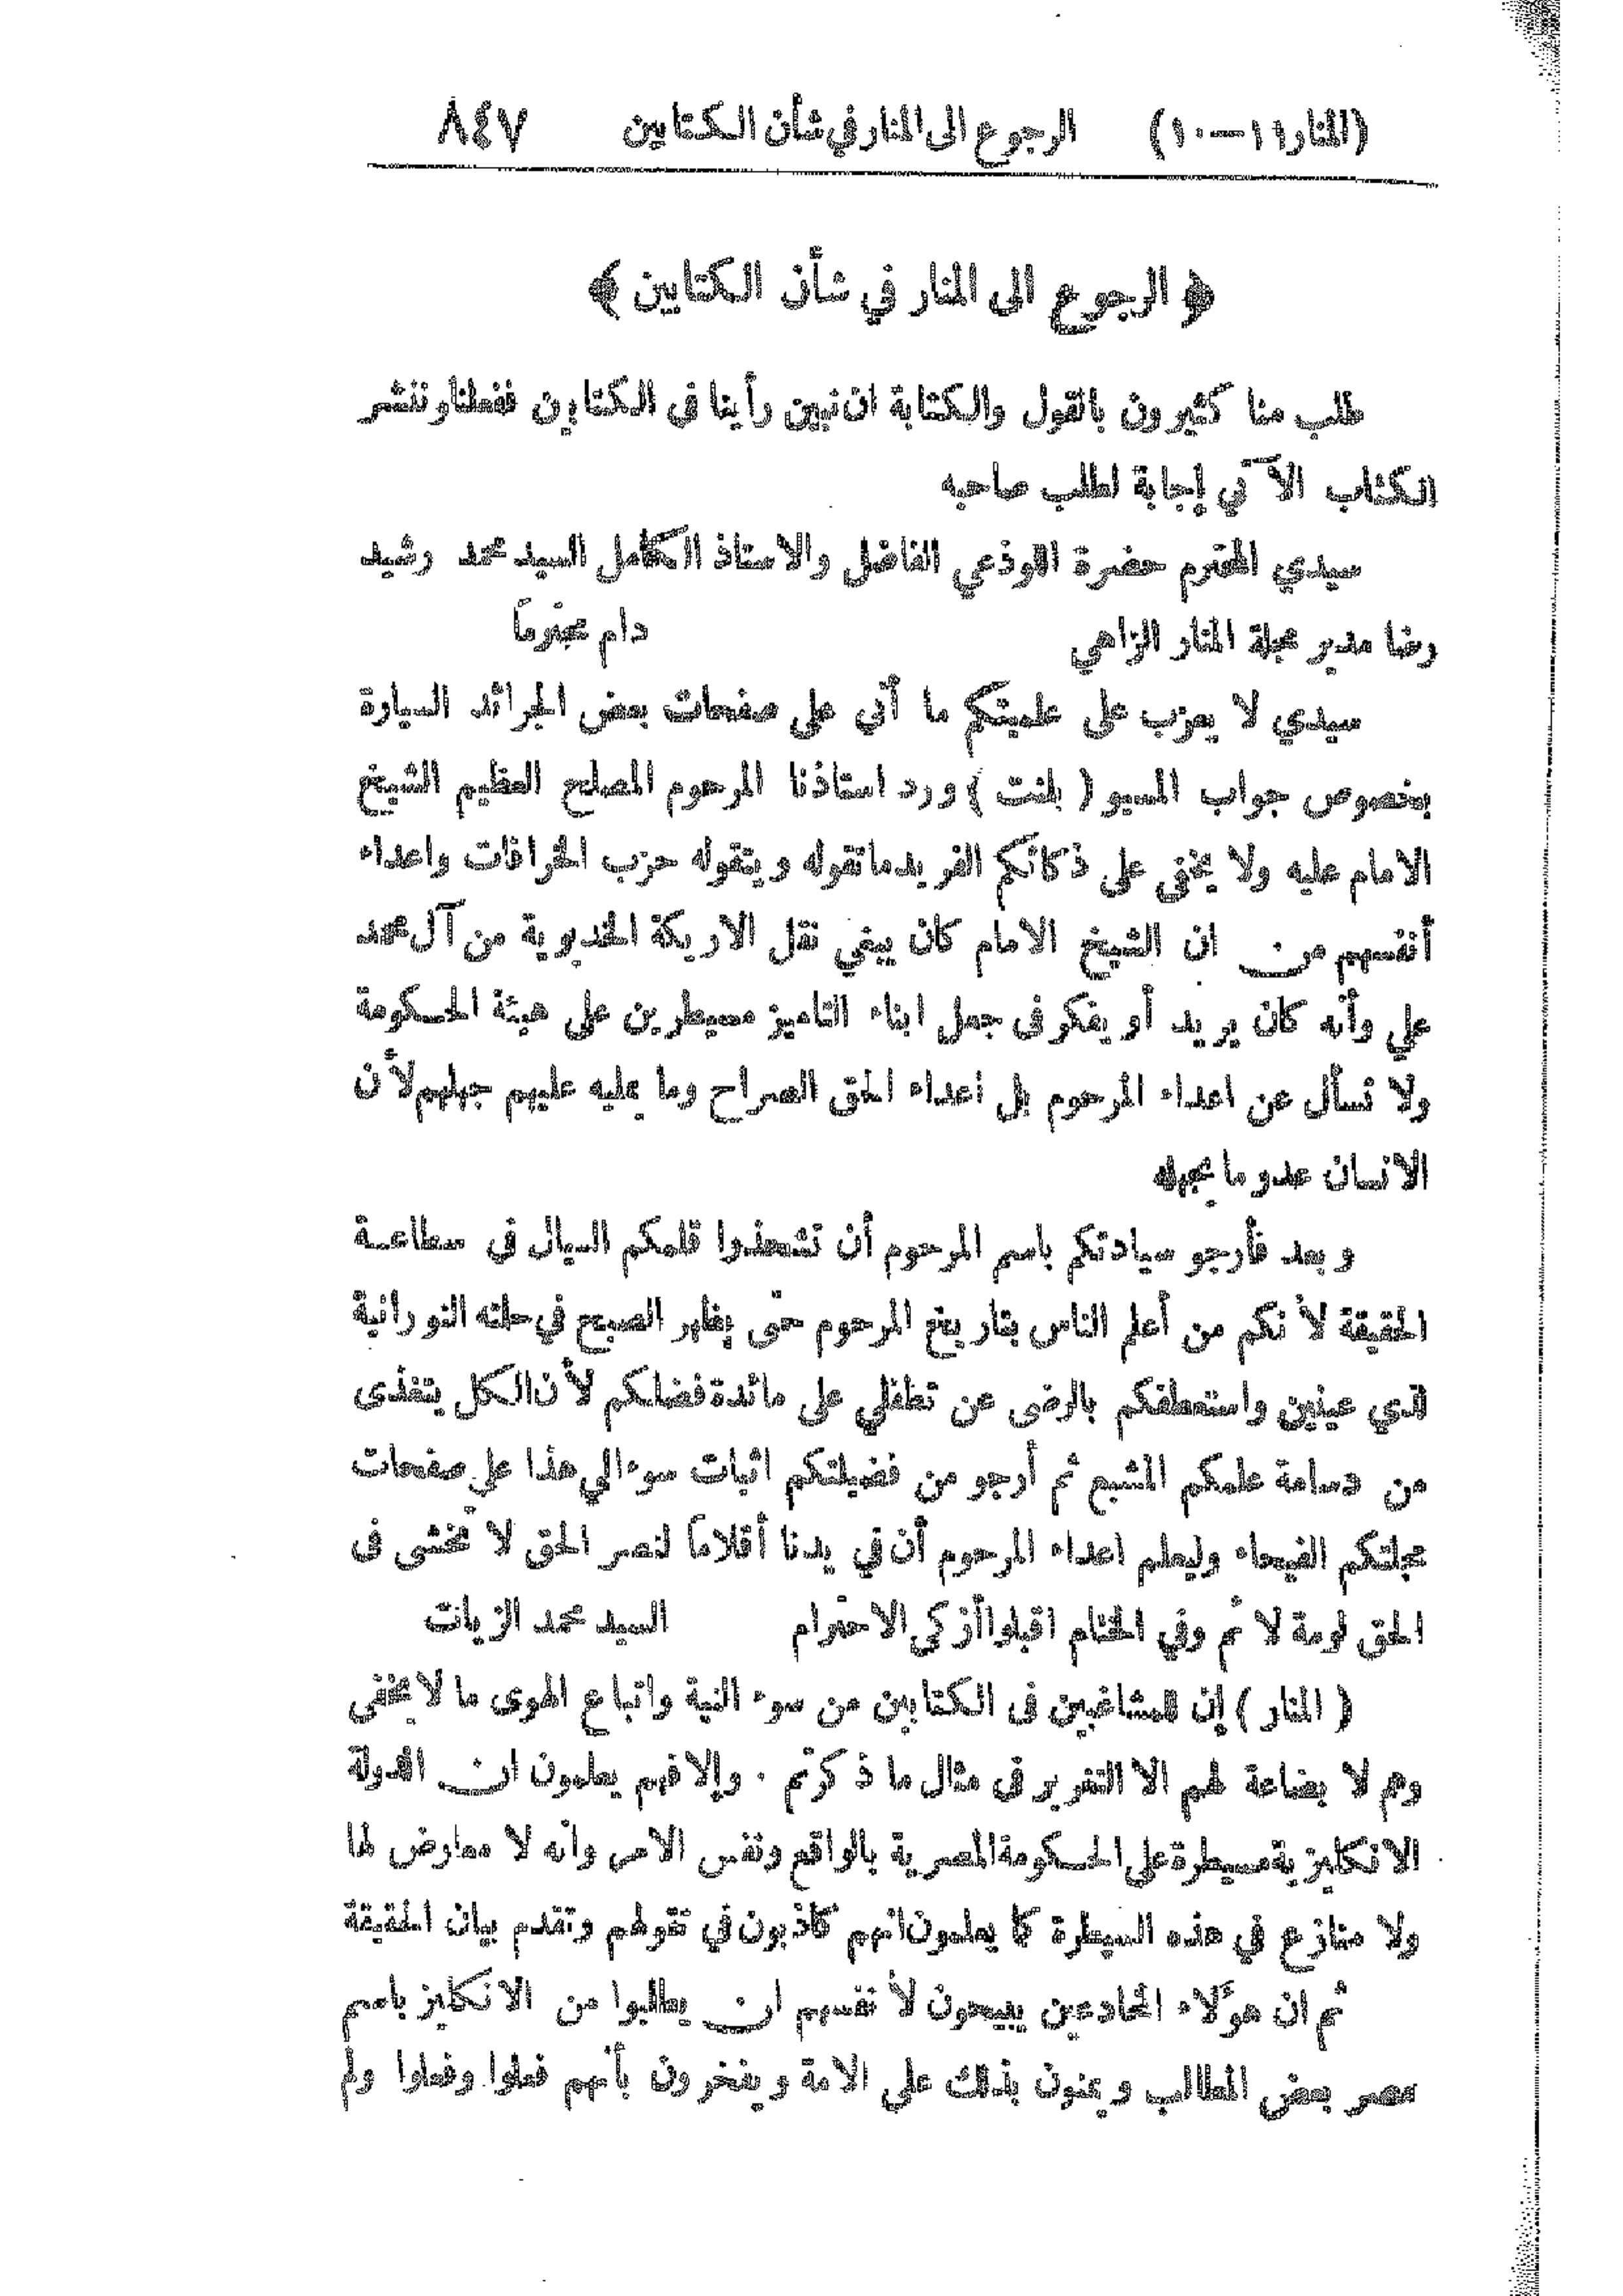 (المنار ١١—١٠) الرجوع الى المنار في شأن الكتابين ٨٤٧
﴿ الرجوع الى المنار في شأن الكتابين ﴾
طلب منا كثيرون بالقول والكتابة ان نبين رأينا في الكتابين ففعلنا وننشر
الكتاب الآتي إجابة لطلب صاحبه
سيدي المحترم حضرة اللوذعي الفاضل والاستاذ الكامل السيد محمد رشيد
رضا مدير مجلة المنار الزاهي دام محترماً
سيدي لا يعزب على علميتكم ما أتى على صفحات بعض الجرائد السيارة
بخصوص جواب المسيو ( بلنت ) ورد استاذنا المرحوم المصلح العظيم الشيخ
الامام عليه ولا يخفى على ذكائكم الفريد ما تقوله ويتقوله حزب الخرافات واعداء
أنفسهم من ان الشيخ الامام كان يبغي نقل الاريكة الخديوية من آل محمد
علي وأنه كان يريد أو يفكر في جعل ابناء التاميز مسيطرين على هيئة الحكومة
ولا تسأل عن اعداء المرحوم بل اعداء الحق الصراح وما يمليه عليهم جهلهم لأن
الانسان عدو ما يجهله
وبعد فأرجو سيادتكم باسم المرحوم أن تشحذوا قلمكم السيال في سطاعة
الحقيقة لأنكم من أعلم الناس بتاريخ المرحوم حتى يظهر الصبح في حلته النورانية
لذي عينين واستعطفكم بالرضى عن تطفلي على مائدة فضلكم لأن الكل يتغذى
من دسامة علمكم المشبع ثم أرجو من فضيلتكم اثبات سوءالي هذا على صفحات
مجلتكم الفيحاء وليعلم اعداء المرحوم أن في يدنا أقلاماً لنصر الحق لا تخشى في
الحق لومة لائم وفي الختام اقبلوا أزكى الاحترام السيد محمد الزيات
( المنار ) إن للمشاغبين في الكتابين من سوء النية واتباع الهوى ما لا يخفى
وهم لا بضاعة لهم الا التغرير في مثال ما ذكرتم . وإلا فهم يعلمون ان الدولة
الانكليزية مسيطرة على الحكومة المصرية بالواقع ونفس الامر وانه لا معارض لها
ولا منازع في هذه السيطرة كما يعلمون انهم كاذبون في تقولهم وتقدم بيان الحقيقة
ثم ان هؤلاء المخادعين يبيحون لأنفسهم ان يطالبوا من الانكليز باسم
مصر بعض المطالب ويمنون بذلك على الامة ويفخرون بأنهم فعلوا وفعلوا ولم